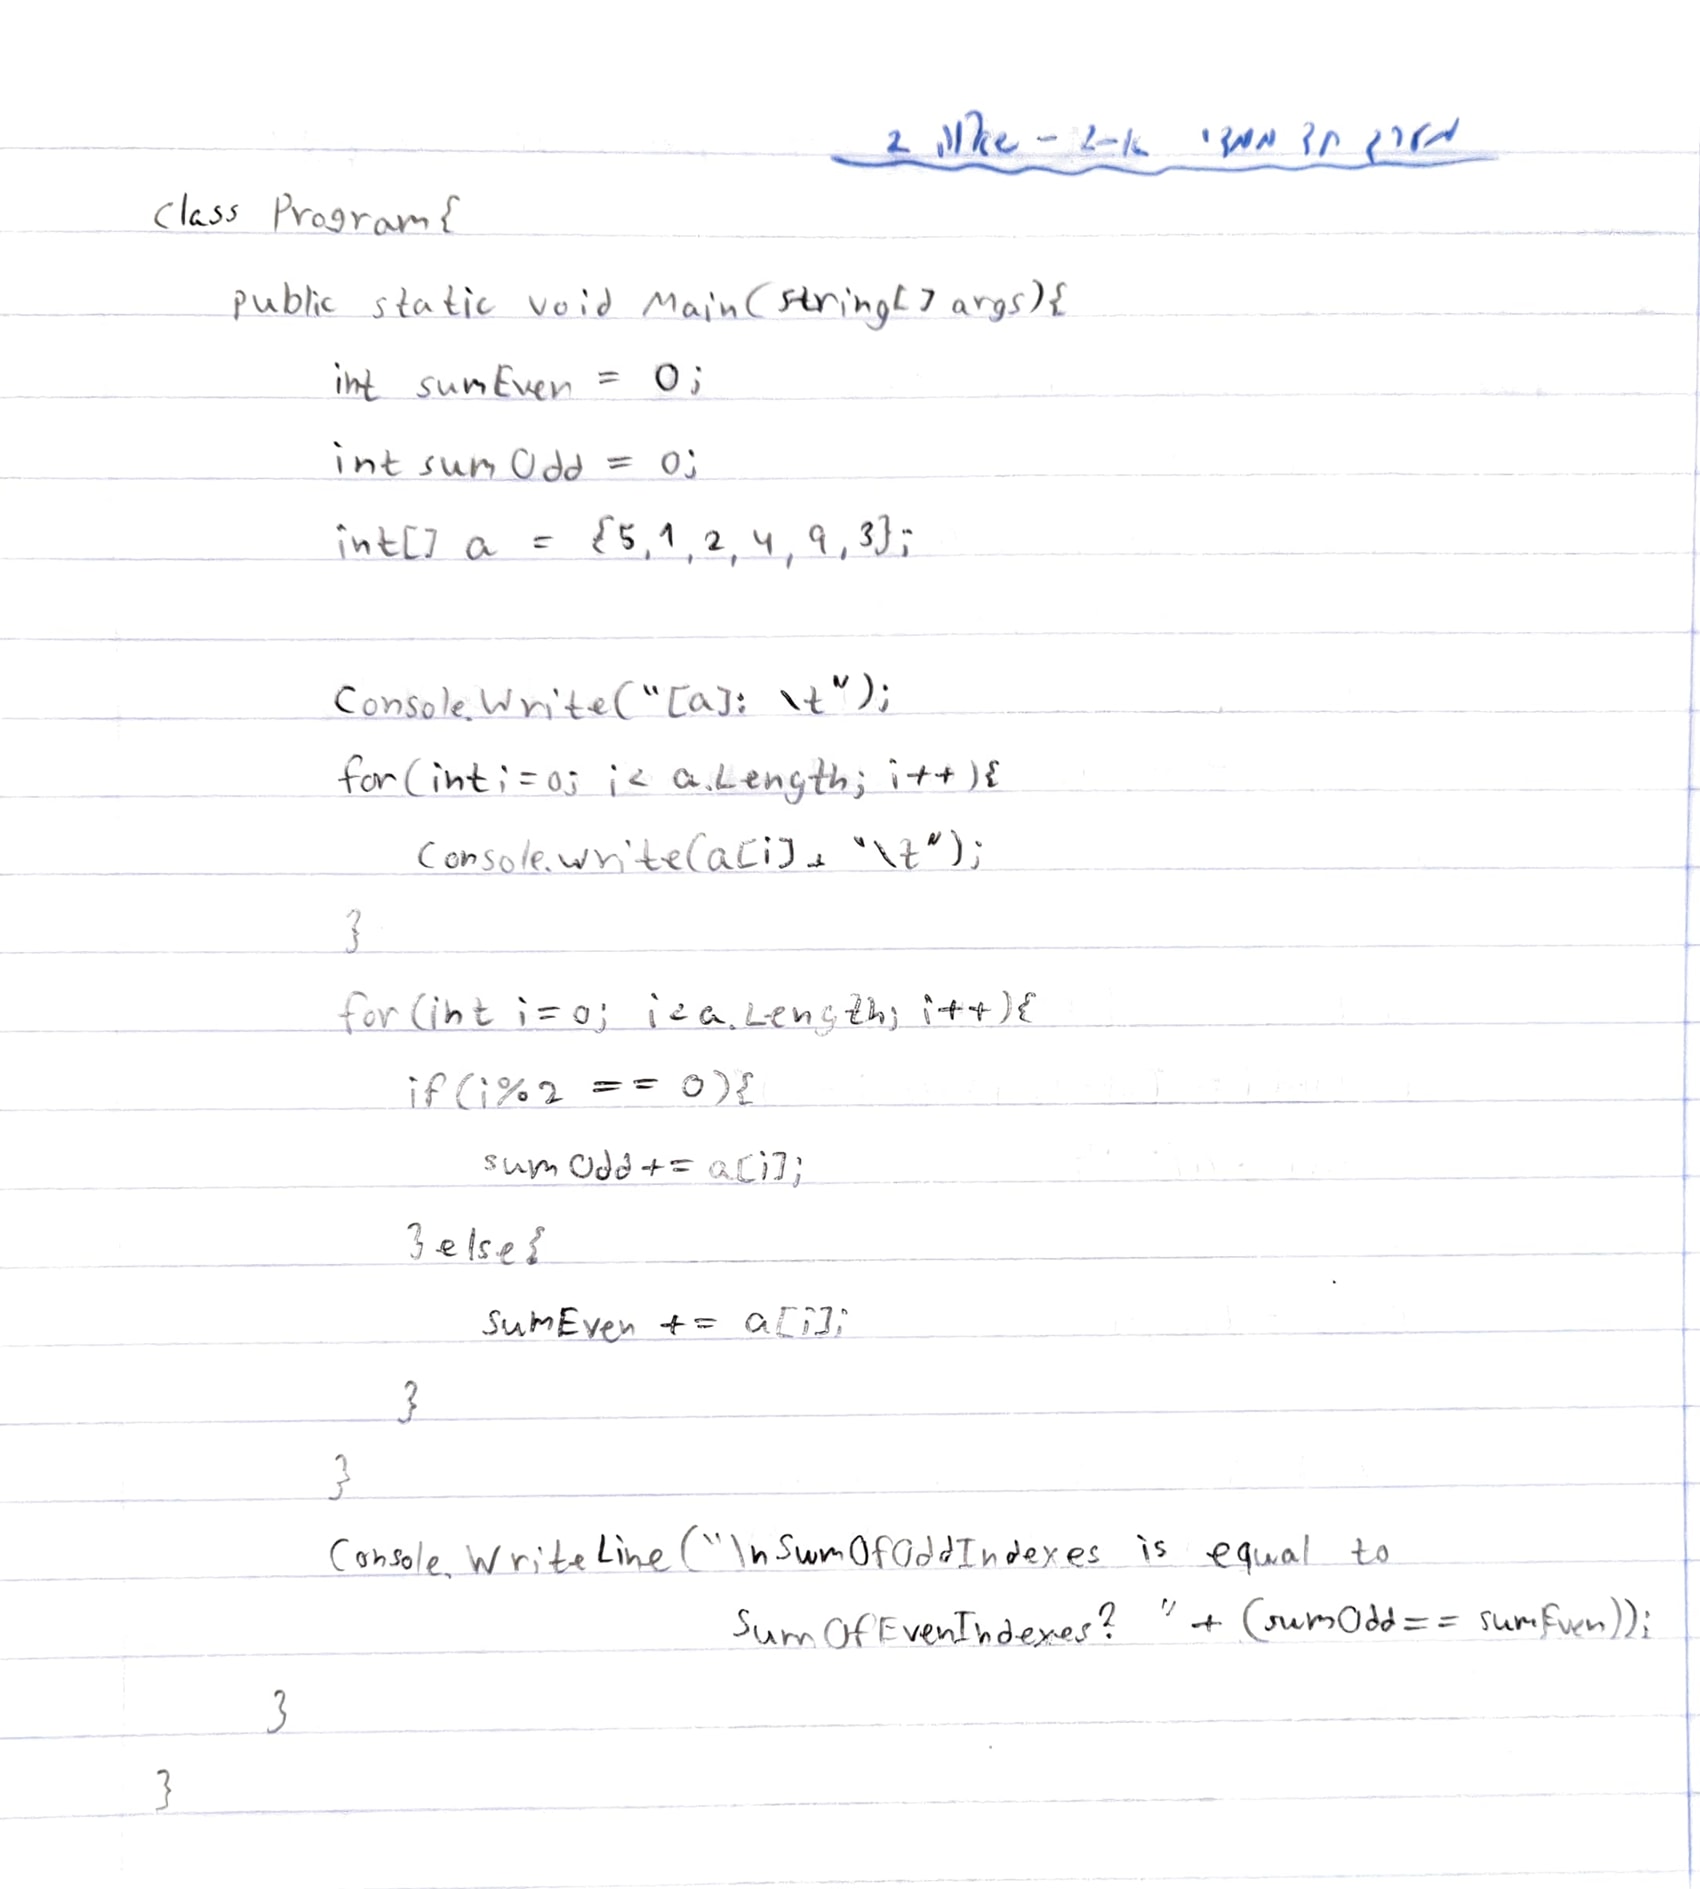 מערך חד מממדי א-2 - שאלון 2
class Program{
public static void Main(string[] args){
int sumEven = 0;
int sumOdd = 0;
int[] a = {5,1,2,4,9,3};
Console.Write("[a]: \t");
for(int i=0; i< a.Length; i++){
Console.write(a[i]+ "\t");
}
for(int i=0; i<a.Length; i++){
if(i%2 == 0){
sumOdd += a[i];
}else{
sumEven += a[i];
}
}
Console.WriteLine("\nSumOfOddIndexes is equal to
SumOfEvenIndexes? " + (sumOdd == sumEven));
}
}